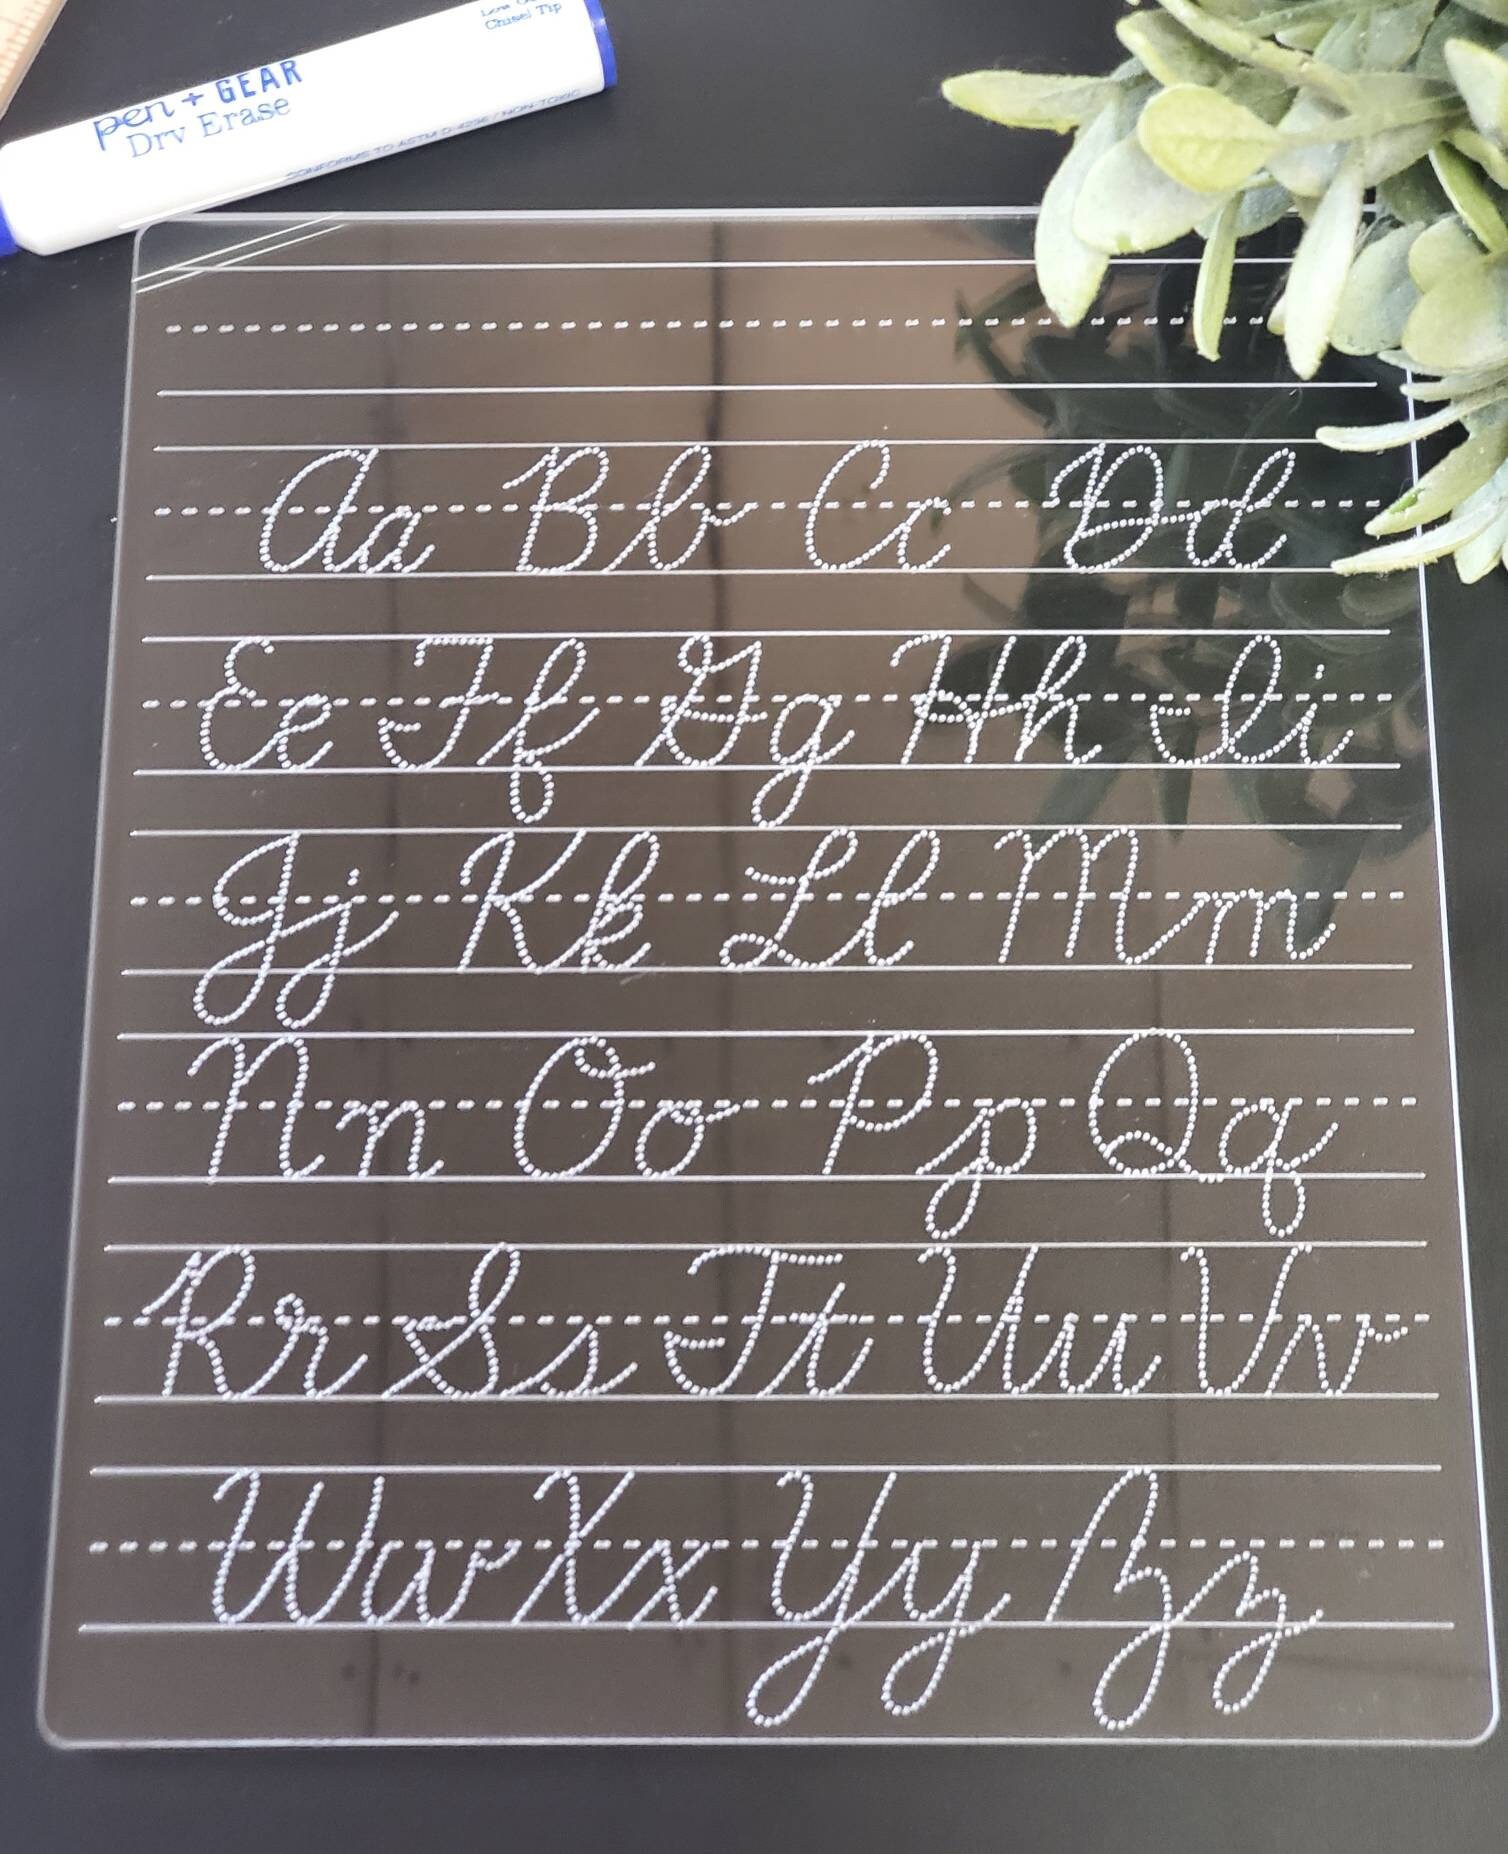 Chisel Tip
pen + GEAR
Dry Erase
CONFORMS TO ASTM D-4236 / NON-TOXIC
Aa Bb Cc Dd
Ee Ff Gg Hh Ii
Jj Kk Ll Mm
Nn Oo Pp Qq
Rr Ss Tt Uu Vv
Ww Xx Yy Zz